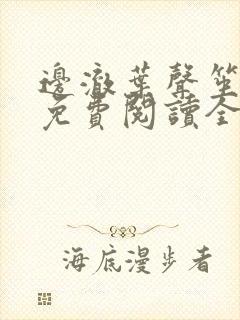 邊澈葉聲笙
免費閱讀全
海底漫步者